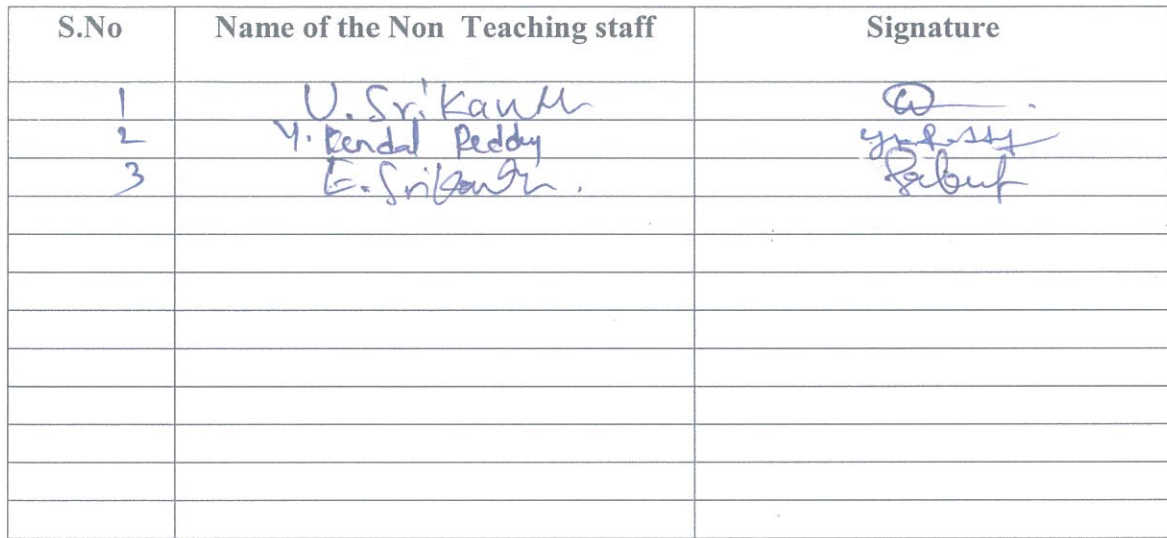 S.No Name of the Non Teaching staff Signature
1 U. Srikanth
2 Y. Rendal Reddy
3 E. Srikanth.